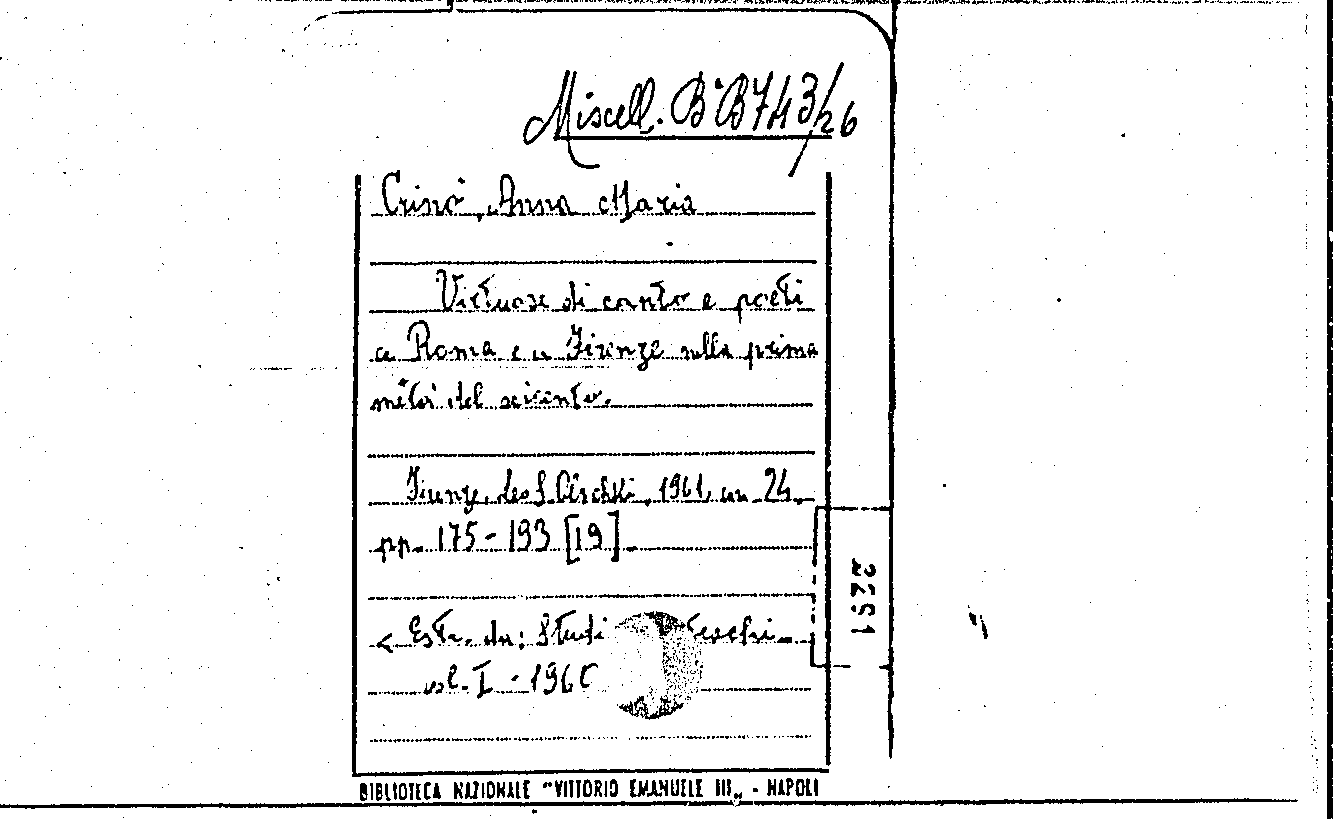 Miscell. B B 743/26
Crinò, Anna Maria
Virtuose di canto e poeti
a Roma e a Firenze nella prima
metà del seicento.
Firenze, Leo S. Olschki, 1961, in 24
pp. 175-193 [19].
< Estr. da: Studi
vol. I - 1960
2291
BIBLIOTECA NAZIONALE "VITTORIO EMANUELE III„ - NAPOLI